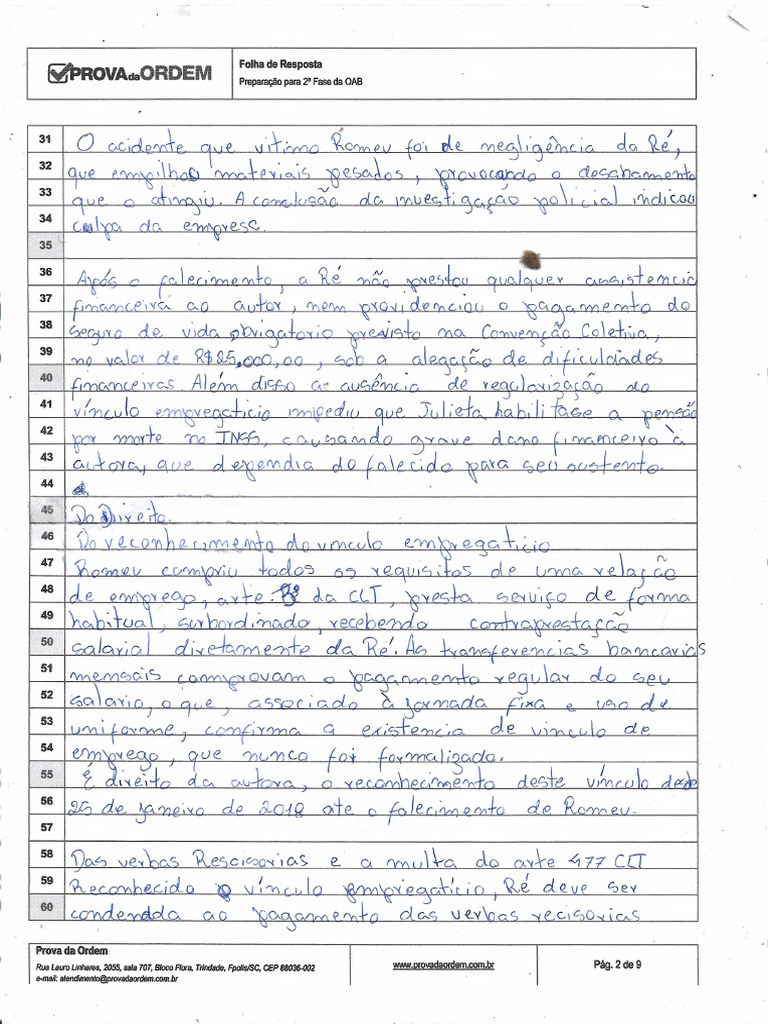 PROVAdaORDEM
Folha de Resposta
Preparação para 2ª Fase da OAB
31 O acidente que vitimo Romeu foi de negligência da Ré,
32 que empilhao materiais pesados, provocando o desabamento
33 que o atingiu. A conclusão da investigação policial indicou
34 culpa da empresa.
35
36 Após o falecimento, a Ré não prestou qualquer assistencia
37 financeira ao autor, nem providenciou o pagamento do
38 seguro de vida obrigatorio previsto na Convenção Coletiva,
39 no valor de R$25,000,00, sob a alegação de dificuldades
40 financeiras. Além disso a ausência de regularização do
41 vínculo empregaticio impediu que Julieta habilitase a pensão
42 por morte no INSS, causando grave dano financeiro à
43 autora, que dependia do falecido para seu sustento.
44
45 Do Direito.
46 Do reconhecimento do vinculo empregatício
47 Romeu cumpriu todos os requisitos de uma relação
48 de emprego, arte. 3º da CLT, presta serviço de forma
49 habitual, surbordinado, recebendo contraprestação
50 salarial diretamente da Ré. As transferencias bancarias
51 mensais comprovam o pagamento regular do seu
52 salario, o que, associado à jornada fixa e uso de
53 uniforme, confirma a existencia de vinculo de
54 emprego, que nunca foi formalizado.
55 É direito da autora, o reconhecimento deste vínculo desde
56 25 de janeiro de 2018 ate o falecimento de Romeu.
57
58 Das verbas Rescisorias e a multa do arte 477 CLT
59 Reconhecido o vínculo empregatício, Ré deve ser
60 condendda ao pagamento das verbas recisorias
Prova da Ordem
Rua Lauro Linhares, 2055, sala 707, Bloco Flora, Trindade, Fpolis/SC, CEP 88036-002
e-mail: atendimento@provadaordem.com.br
www.provadaordem.com.br
Pág. 2 de 9